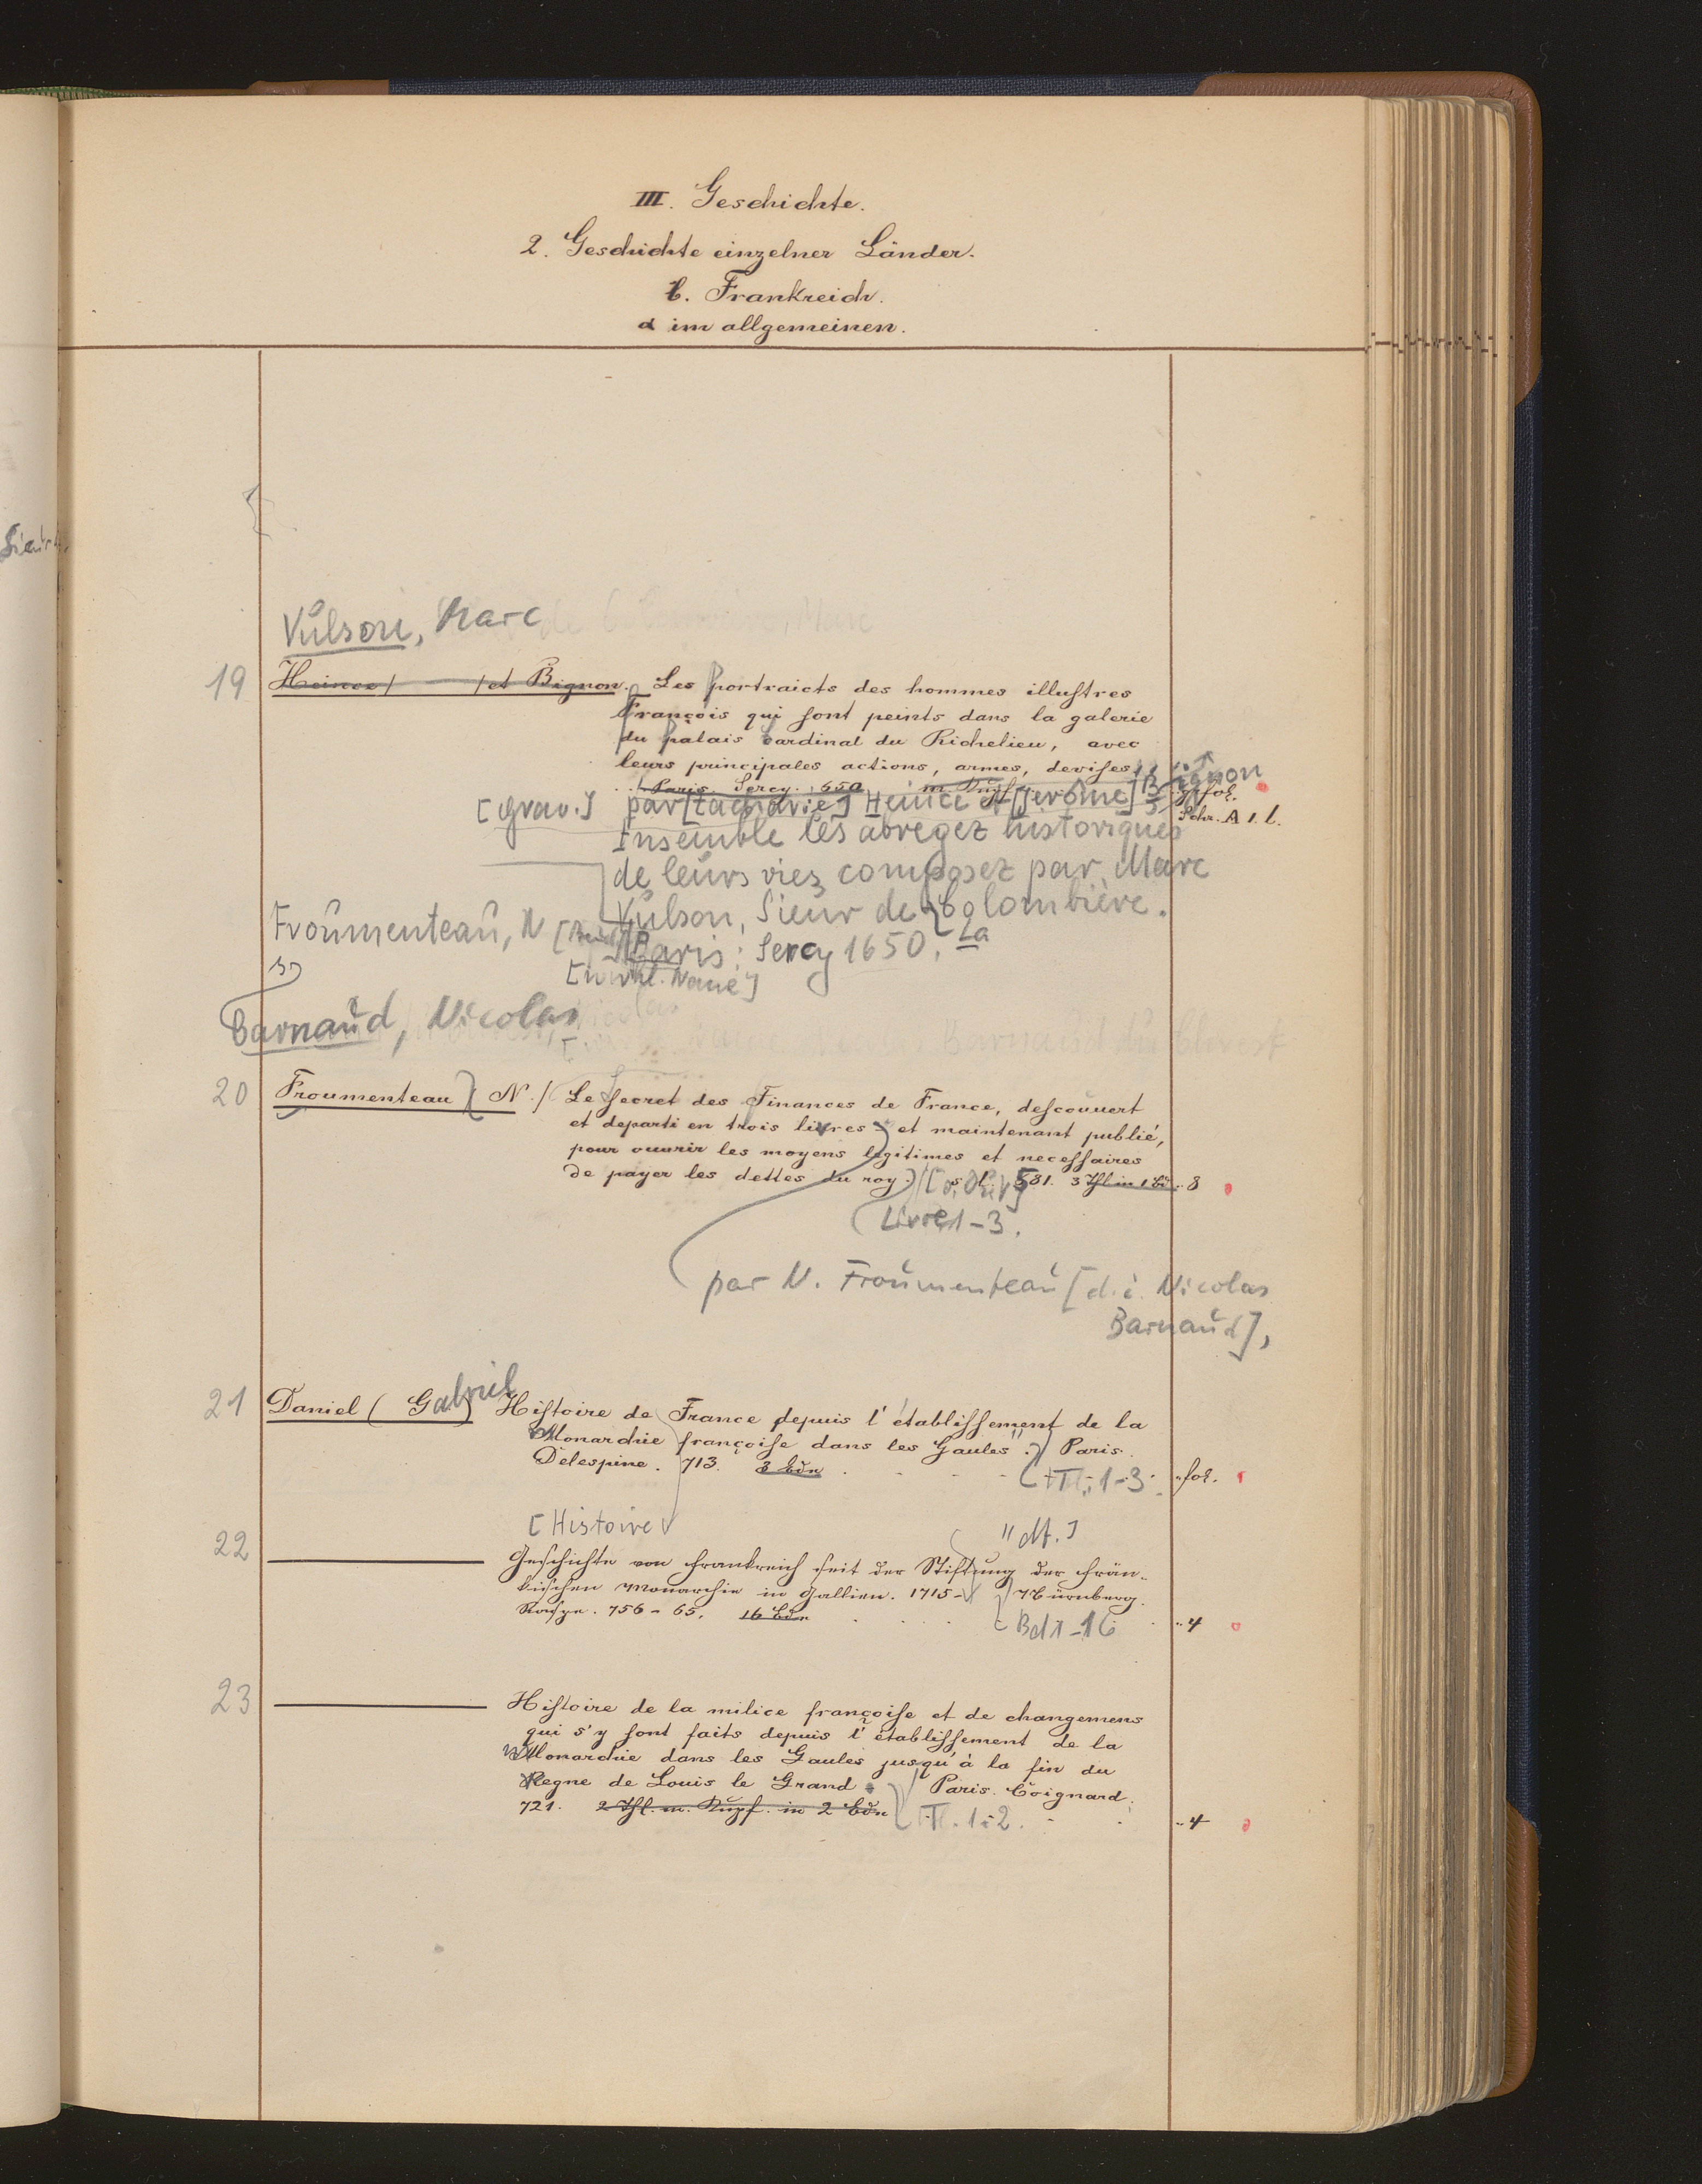 III. Geschichte.
2. Geschichte einzelner Länder.
b. Frankreich.
α im allgemeinen.
Vulson, Marc
19 Heince / / et Bignon. Les portraicts des hommes illustres
François qui sont peints dans la galerie
du palais cardinal du Richelieu, avec
leurs principales actions, armes, devises,
Paris. Sercy. 650. m. Kupf. gr. fol.
[grav.] par [Zacharie] Heince et [Jerôme] Bignon
Schr. A 1. b.
Insemble les abregez historiques
de leurs vies composez par Marc
Vulson, Sieur de La Colombière.
Paris: Sercy 1650.
Froumenteau, N
[wirkl. Name]
Barnaud, Nicolas
20 Froumenteau, N./ Le Secret des Finances de France, descouvert
et departi en trois livres et maintenant publié,
pour ouurir les moyens legitimes et necessaires
de payer les dettes du roy.) s. l. 581. 3 Thl in 1 Bd. 8
Livre 1-3.
par N. Froumenteau [d. i. Nicolas
Barnaud],
21 Daniel (Gabriel) Histoire de France depuis l'établissement de la
Monarchie françoise dans les Gaules. Paris.
Delespine. 713. 3 Bdn fol.
T. 1-3.
[Histoire "dt.]
22 ——— Geschichte von Frankreich seit der Stiftung der frän-
kischen Monarchie in Gallien. 1715- Nürnberg.
Raspe. 756-65. 16 Bdn 4
Bd 1-16
23 ——— Histoire de la milice françoise et de changemens
qui s'y sont faits depuis l'établissement de la
Monarchie dans les Gaules jusqu'à la fin du
Regne de Louis le Grand. Paris. Coignard.
721. 2 Thl. m. Kupf. in 2 Bdn 4
T. 1-2.